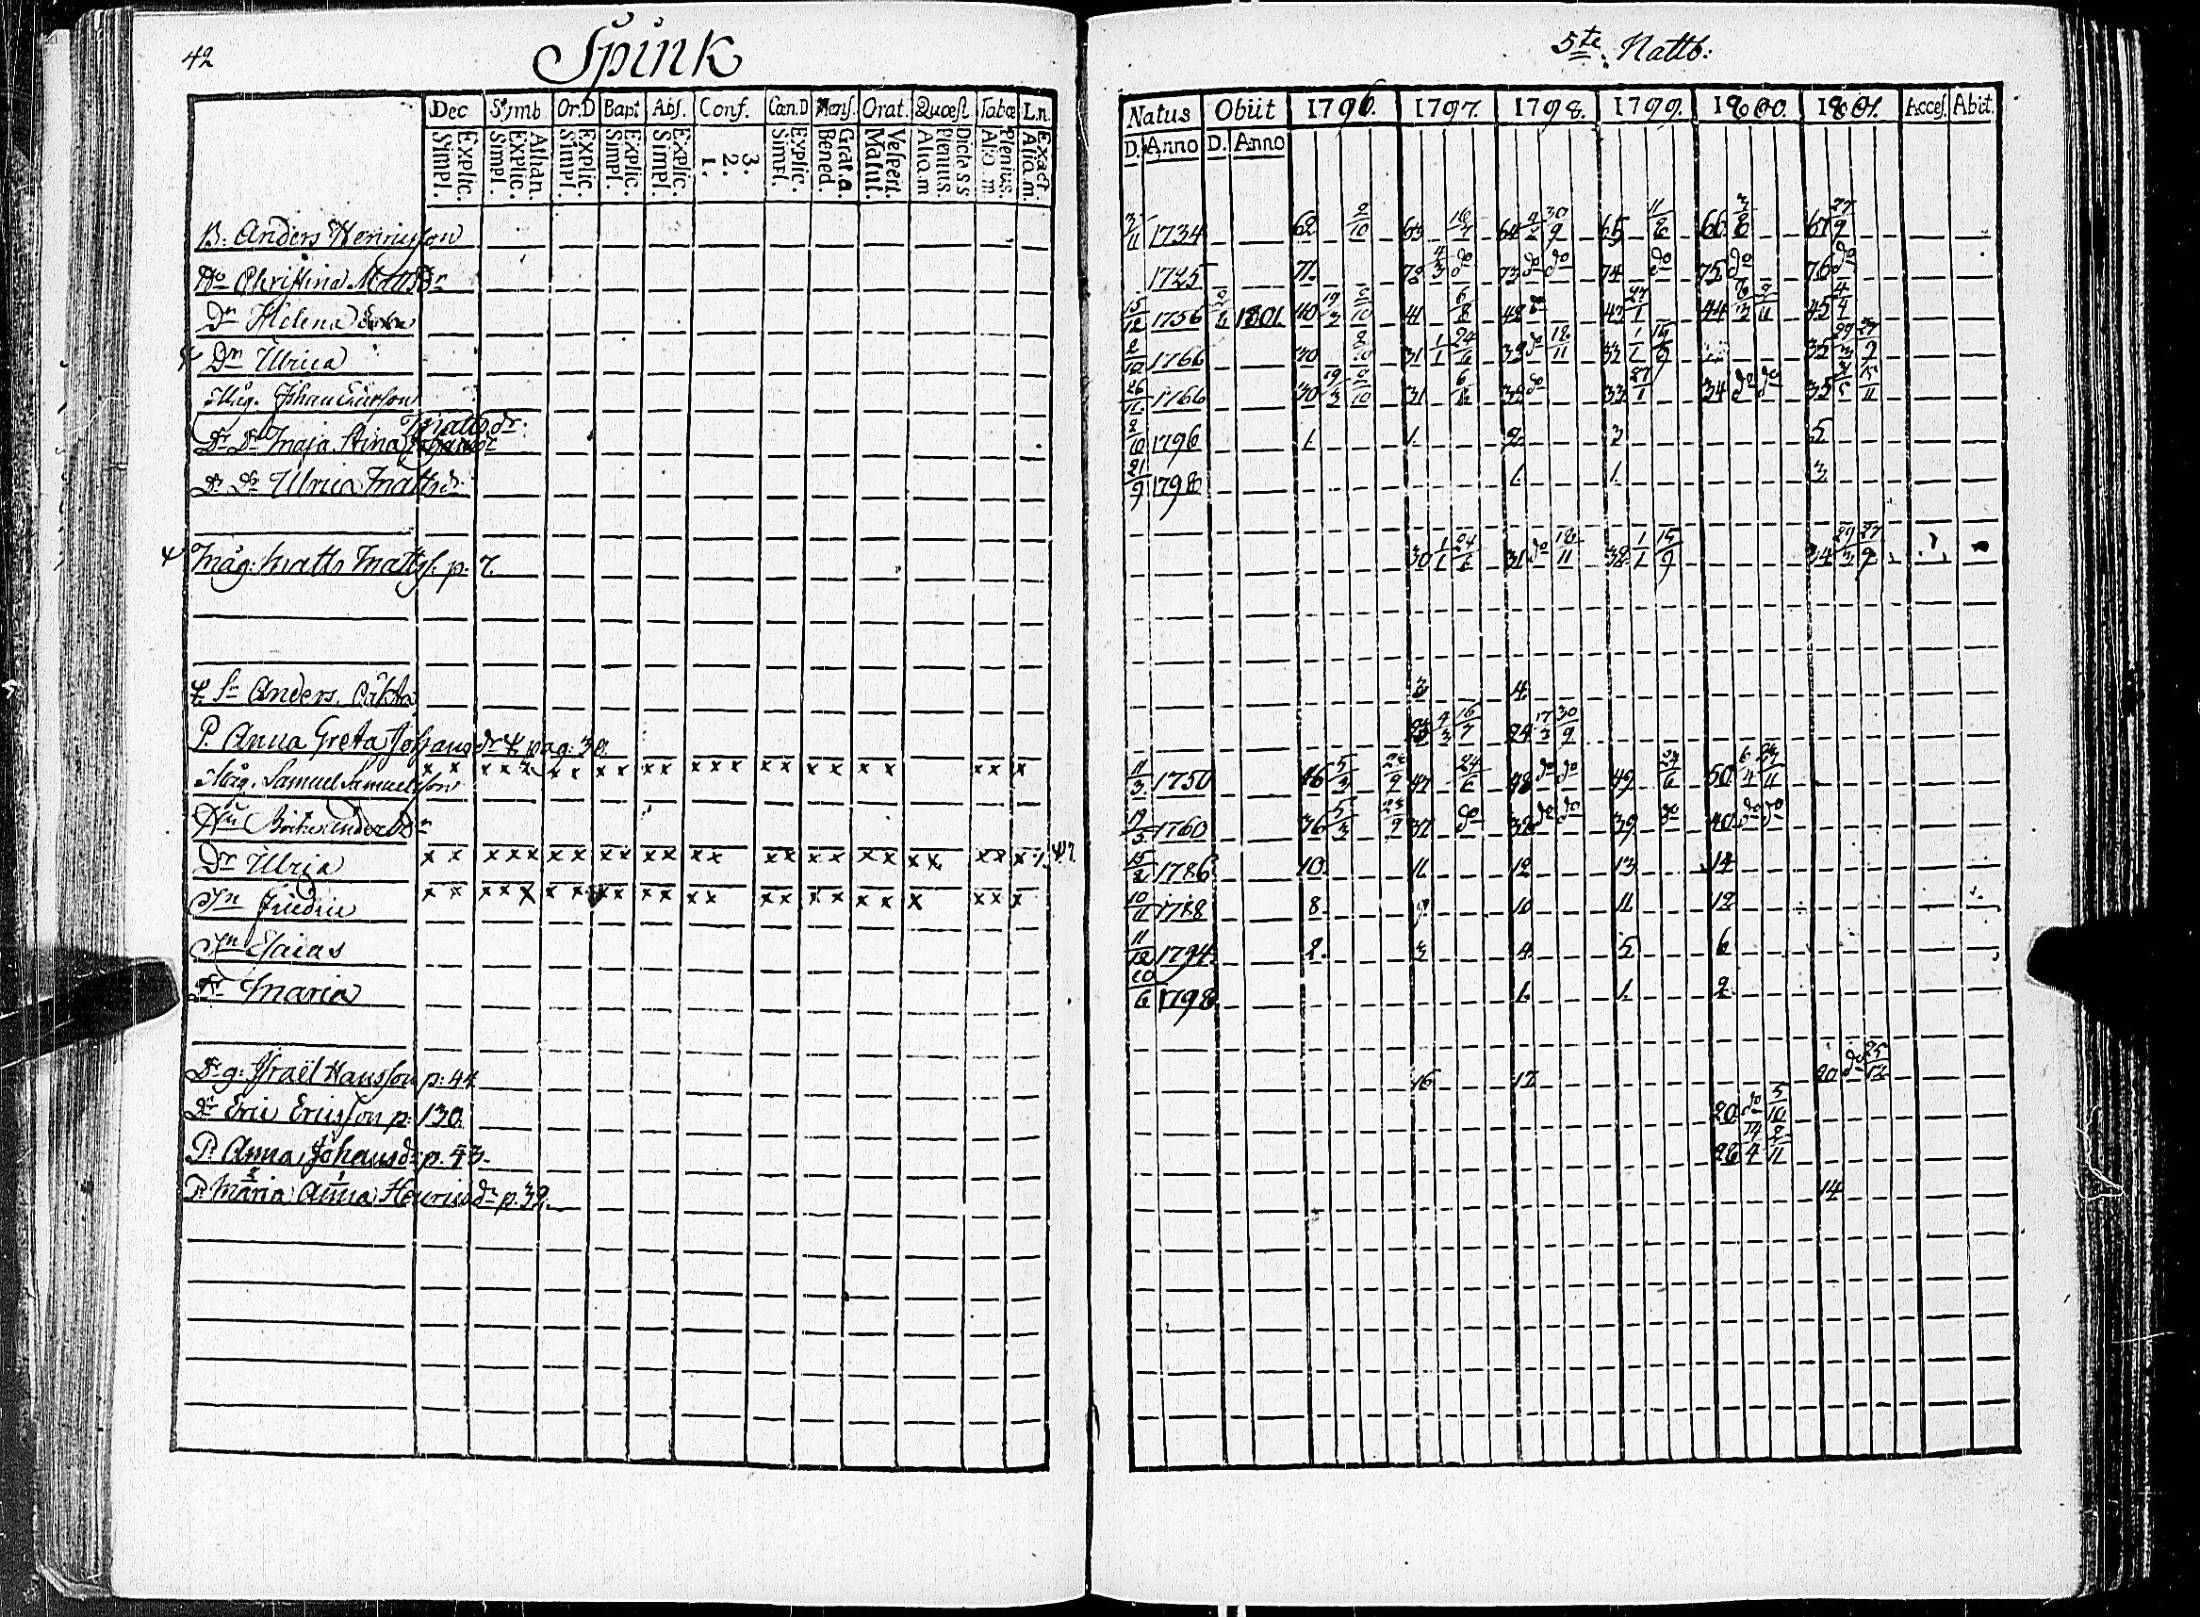 42
Spink
5te Nattb:
Dec Symb Or.D Bapt Abs. Conf. Cœn.D Mens. Orat. Quæst Tabæ L.n.
Simpl. Explic. Simpl. Explic. Athan. Simpl. Explic. Simpl. Explic. Simpl. Explic. 1. 2. 3. Simpl. Explic. Bened. Grat.a. Matut. Vespert. Aliq.m Plenius. Dicta s s Aliq.m Plenius. Aliq.m Exact
Natus Obiit 1796. 1797. 1798. 1799. 1800. 1801. Acces. Abit.
D. Anno D. Anno
B: Anders Henriksson 3/11 1734 62 2/10 63 16/7 64 30/9 65 11/6 66 67 27/9
Christina 1725 71 72 4/3 do 73 do do 74 do 75 do 76 do
Dr Helena 15/12 1756 1801 40 19/3 2/10 41 6/8 42 do 43 27/1 44 45
Dr Ulrica 2/12 1766 30 2/10 31 1/1 24/6 32 do 18/11 33 1/1 15/9 35 29/3 27/9
Måg. Johan Ericsson 1766 30 19/3 2/10 31 6/8 32 do 33 27/1 34 do do 35
Matts dr.
Dr Dr Maja Stina 2/10 1796 1. 1. 2. 3 5
Dr Dr Ulrica Mattsdr 21/9 1798 1. 1. 3
Måg: Matts Mattss. p. 7. 30 1/1 24/6 31 do 18/11 32 1/1 15/9 34 29/3 27/9
Sn Anders. 3 4
P. Anna Greta Johansdr pag: 30. 23 4/3 16/7 24 17/3 30/9
Måg. Samuel Samuelsson x x x x x x x x x x x x x x x x x x x x x x x 11/3 1750 46 5/3 47 24/6 48 do do 49 24/6 50 6/4
Hu 19/5 1760 36 5/3 37 do 38 do do 39 do 40 do do
Dr Ulrica x x x x x x x x x x x x x x x x x x x x x x x x 15/2 1786 10. 11 12 13 14
Sn Fredric x x x x x x x x x x x x x x x x x x x x x x x 10/11 1788 8. 9 10 11 12
Sn Esaias 11/12 1794. 2. 3 4 5 6
Dr Maria 10/6 1798 1. 1. 2
Dr g: Israël Hansson p: 44 16 17 20 do
Dr Eric Ericsson p: 130. 20 do 5/10
P. Anna Johansdr p. 43. 26
P. Maria Anna Henricsdr p. 32. 14